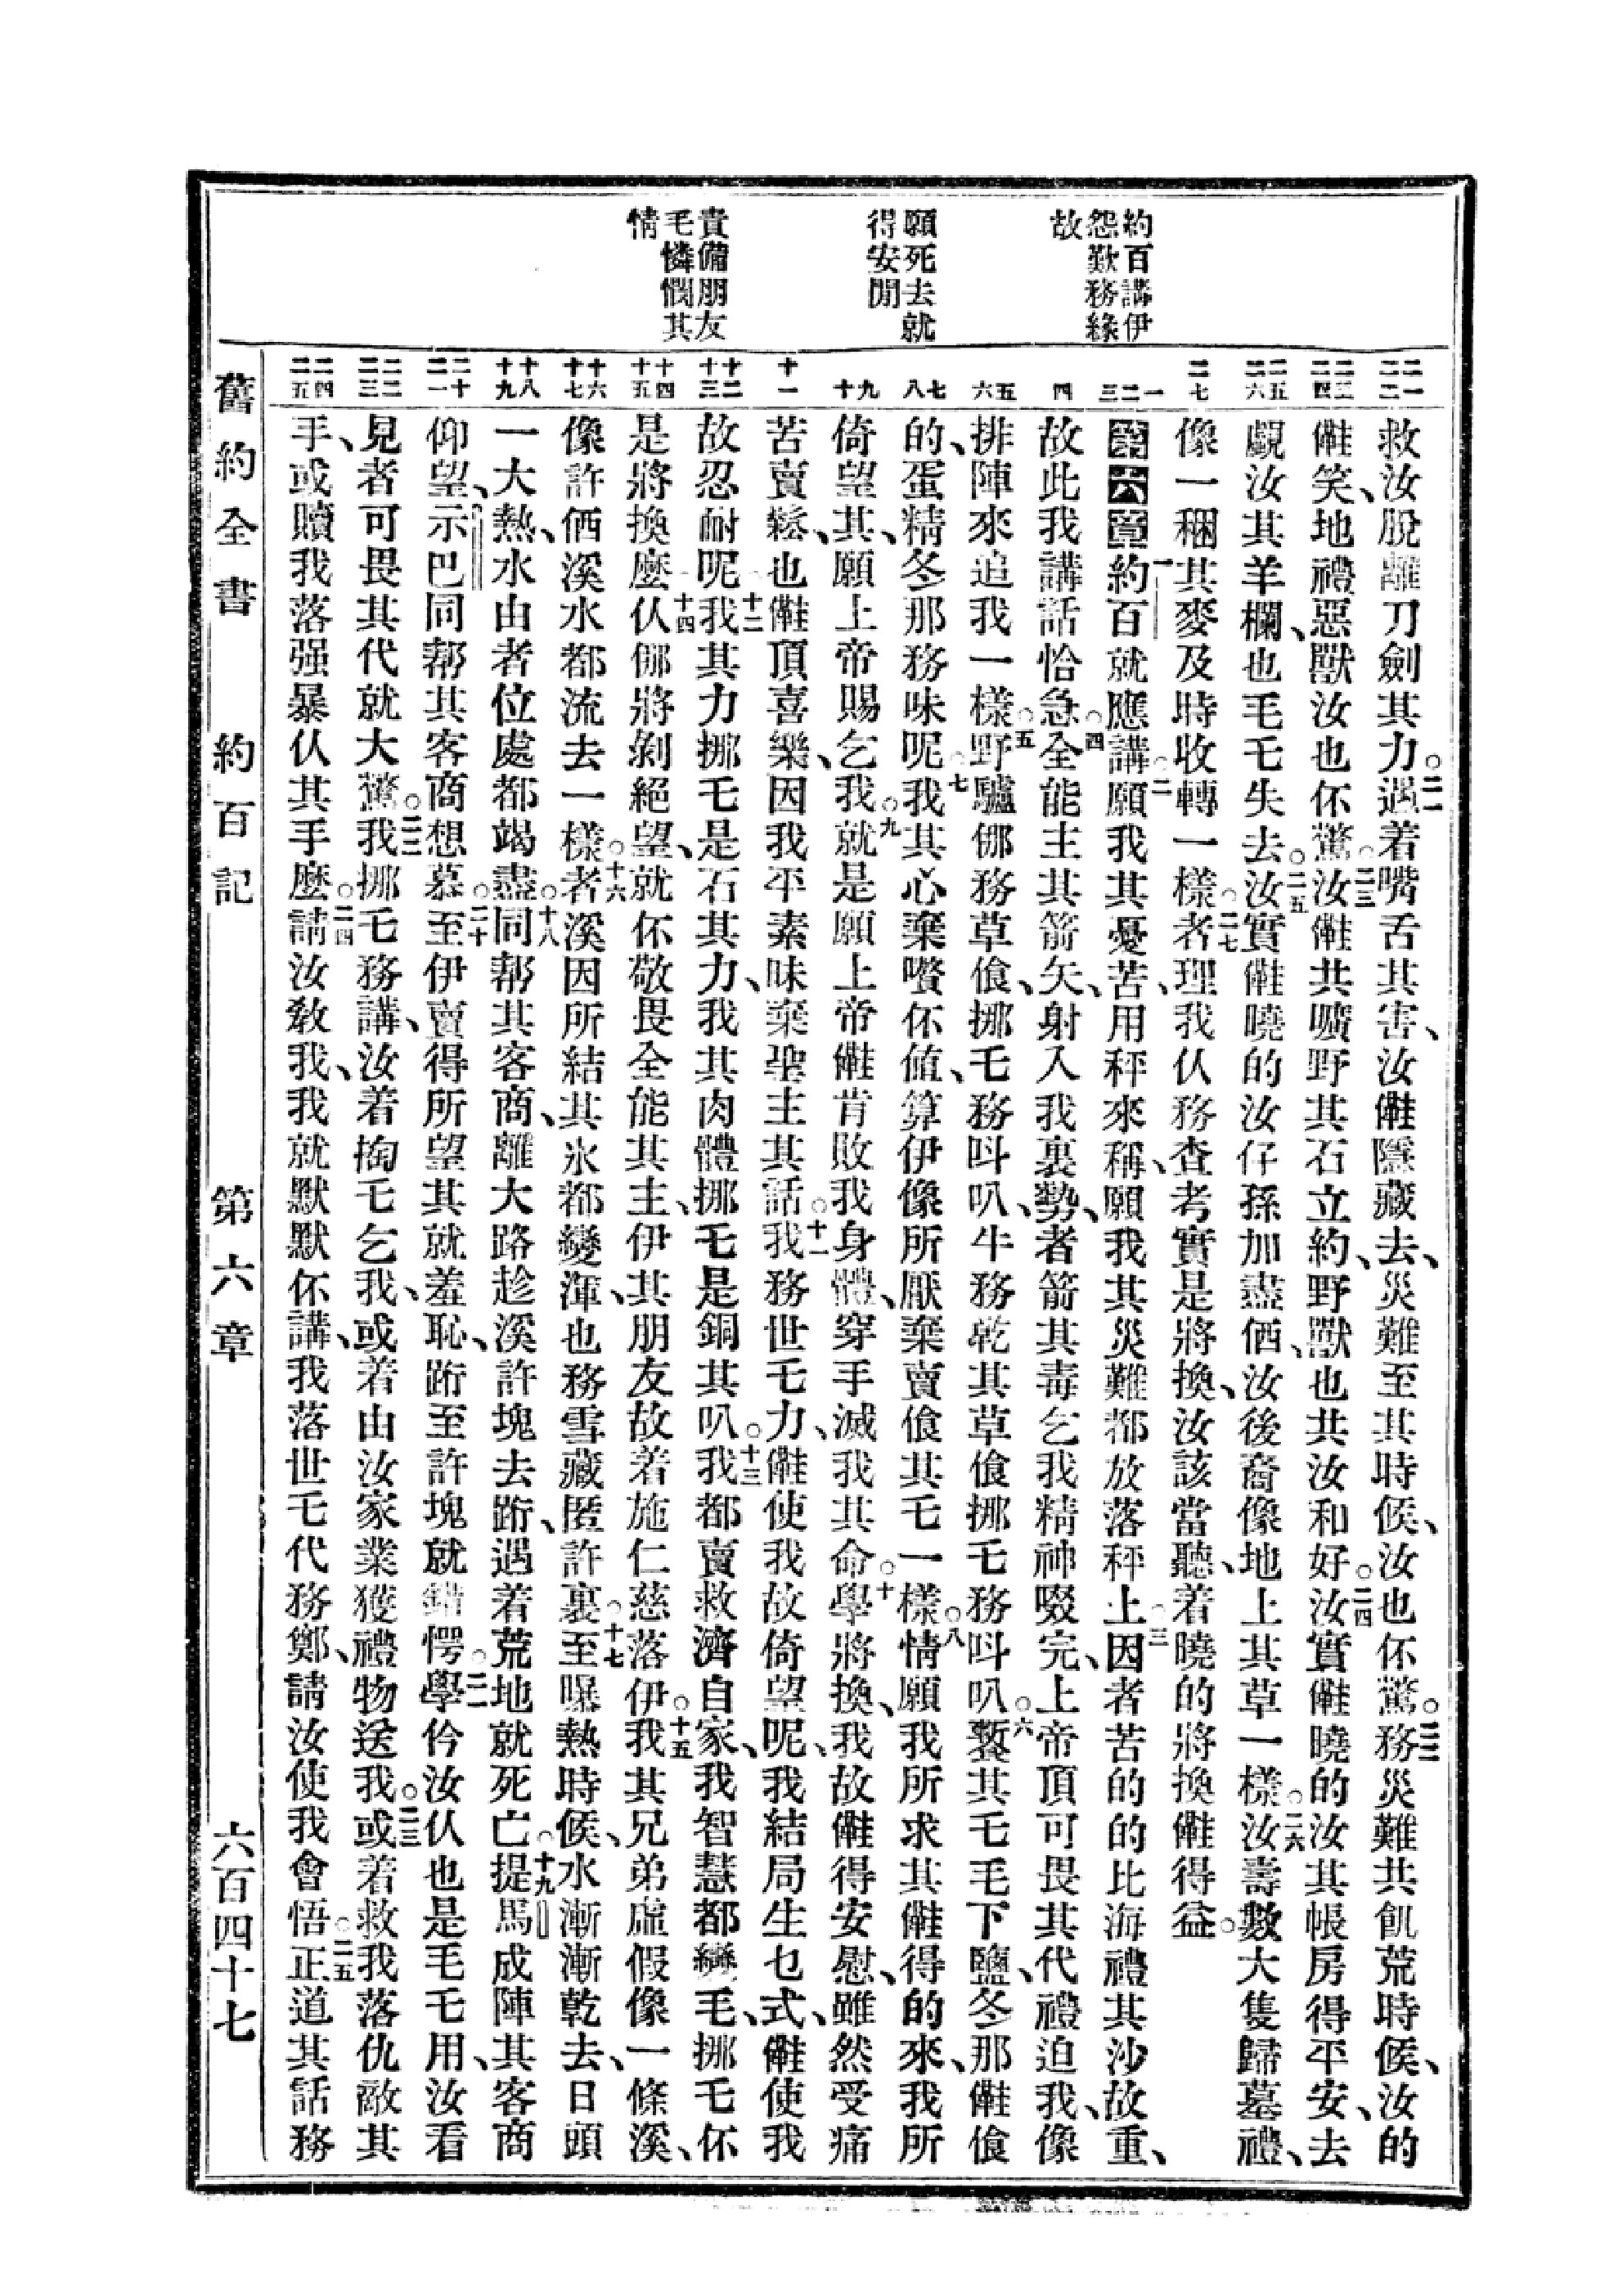 約百講伊
怨歎務緣
故
願死去就
得安閒
責備朋友
毛憐憫其
情
救汝脫離刀劍其力。二一遇着嘴舌其害、汝㑚隱藏去、災難至其時候、汝也伓驚。二二務災難共飢荒時候、汝的
㑚笑、地禮惡獸汝也伓驚。二三汝㑚共曠野其石立約、野獸也共汝和好。二四汝實㑚曉的汝其帳房得平安、去
覷汝其羊欄、也毛乇失去。二五汝實㑚曉的汝仔孫加盡価、汝後裔像地上其草一樣。二六汝壽數大隻歸墓禮、
像一稇其麥及時收轉一樣。二七者理我仈務查考實是將換、汝該當聽、着曉的將換㑚得益。
第六章 一約百就應講。二願我其憂苦、用秤來稱、願我其災難都放落秤上。三因者苦的的比海禮其沙故重、
故此我講話恰急。四全能主其箭矢、射入我裏勢、者箭其毒乞我精神啜完、上帝頂可畏其代禮迫我、像
排陣來追我一樣。五野驢㑚務草飡、挪毛務吽叭、牛務乾其草飡挪乇務吽叭。六饏其乇毛下鹽、冬那㑚飡
的、蛋精冬那務味呢。七我其心棄嘖伓値、算伊像所厭棄賣飡其乇一樣。八情願我所求其㑚得的來、我所
倚望其、願上帝賜乞我。九就是願上帝㑚肯敗我身體、穿手滅我其命。十學將換、我故㑚得安慰、雖然受痛
苦賣鬆、也㑚頂喜樂、因我平素昧棄聖主其話。十一我務世乇力、㑚使我故倚望呢、我結局生乜式、㑚使我
故忍耐呢。十二我其力挪乇是石其力、我其肉體挪乇是銅其叭。十三我都賣救濟自家、我智慧都變毛、挪乇伓
是將換麼。十四仈㑚將剝絕望、就伓敬畏全能其主、伊其朋友故着施仁慈落伊。十五我其兄弟虛假像一條溪、
像許価溪水都流去一樣。十六者溪因所結其氷都變渾、也務雪藏匿許裏。十七至曝熱時候、水漸漸乾去、日頭
一大熱、水由者位處都竭盡。十八同帮其客商、離大路趁溪許塊去跡、遇着荒地就死亡。十九提馬成陣其客商
仰望、示巴同帮其客商想慕。二十至伊賣得所望其就羞恥、跡至許塊就錯愕。二一學仱汝仈也是毛乇用、汝看
見者可畏其代就大驚。二二我挪乇務講、汝着掏乇乞我、或着由汝家業獲禮物送我。二三或着救我落仇敵其
手、或贖我落强暴仈其手麼。二四請汝敎我、我就默默伓講、我落世乇代務鄭、請汝使我會悟。二五正道其話務
舊約全書 約百記 第六章 六百四十七